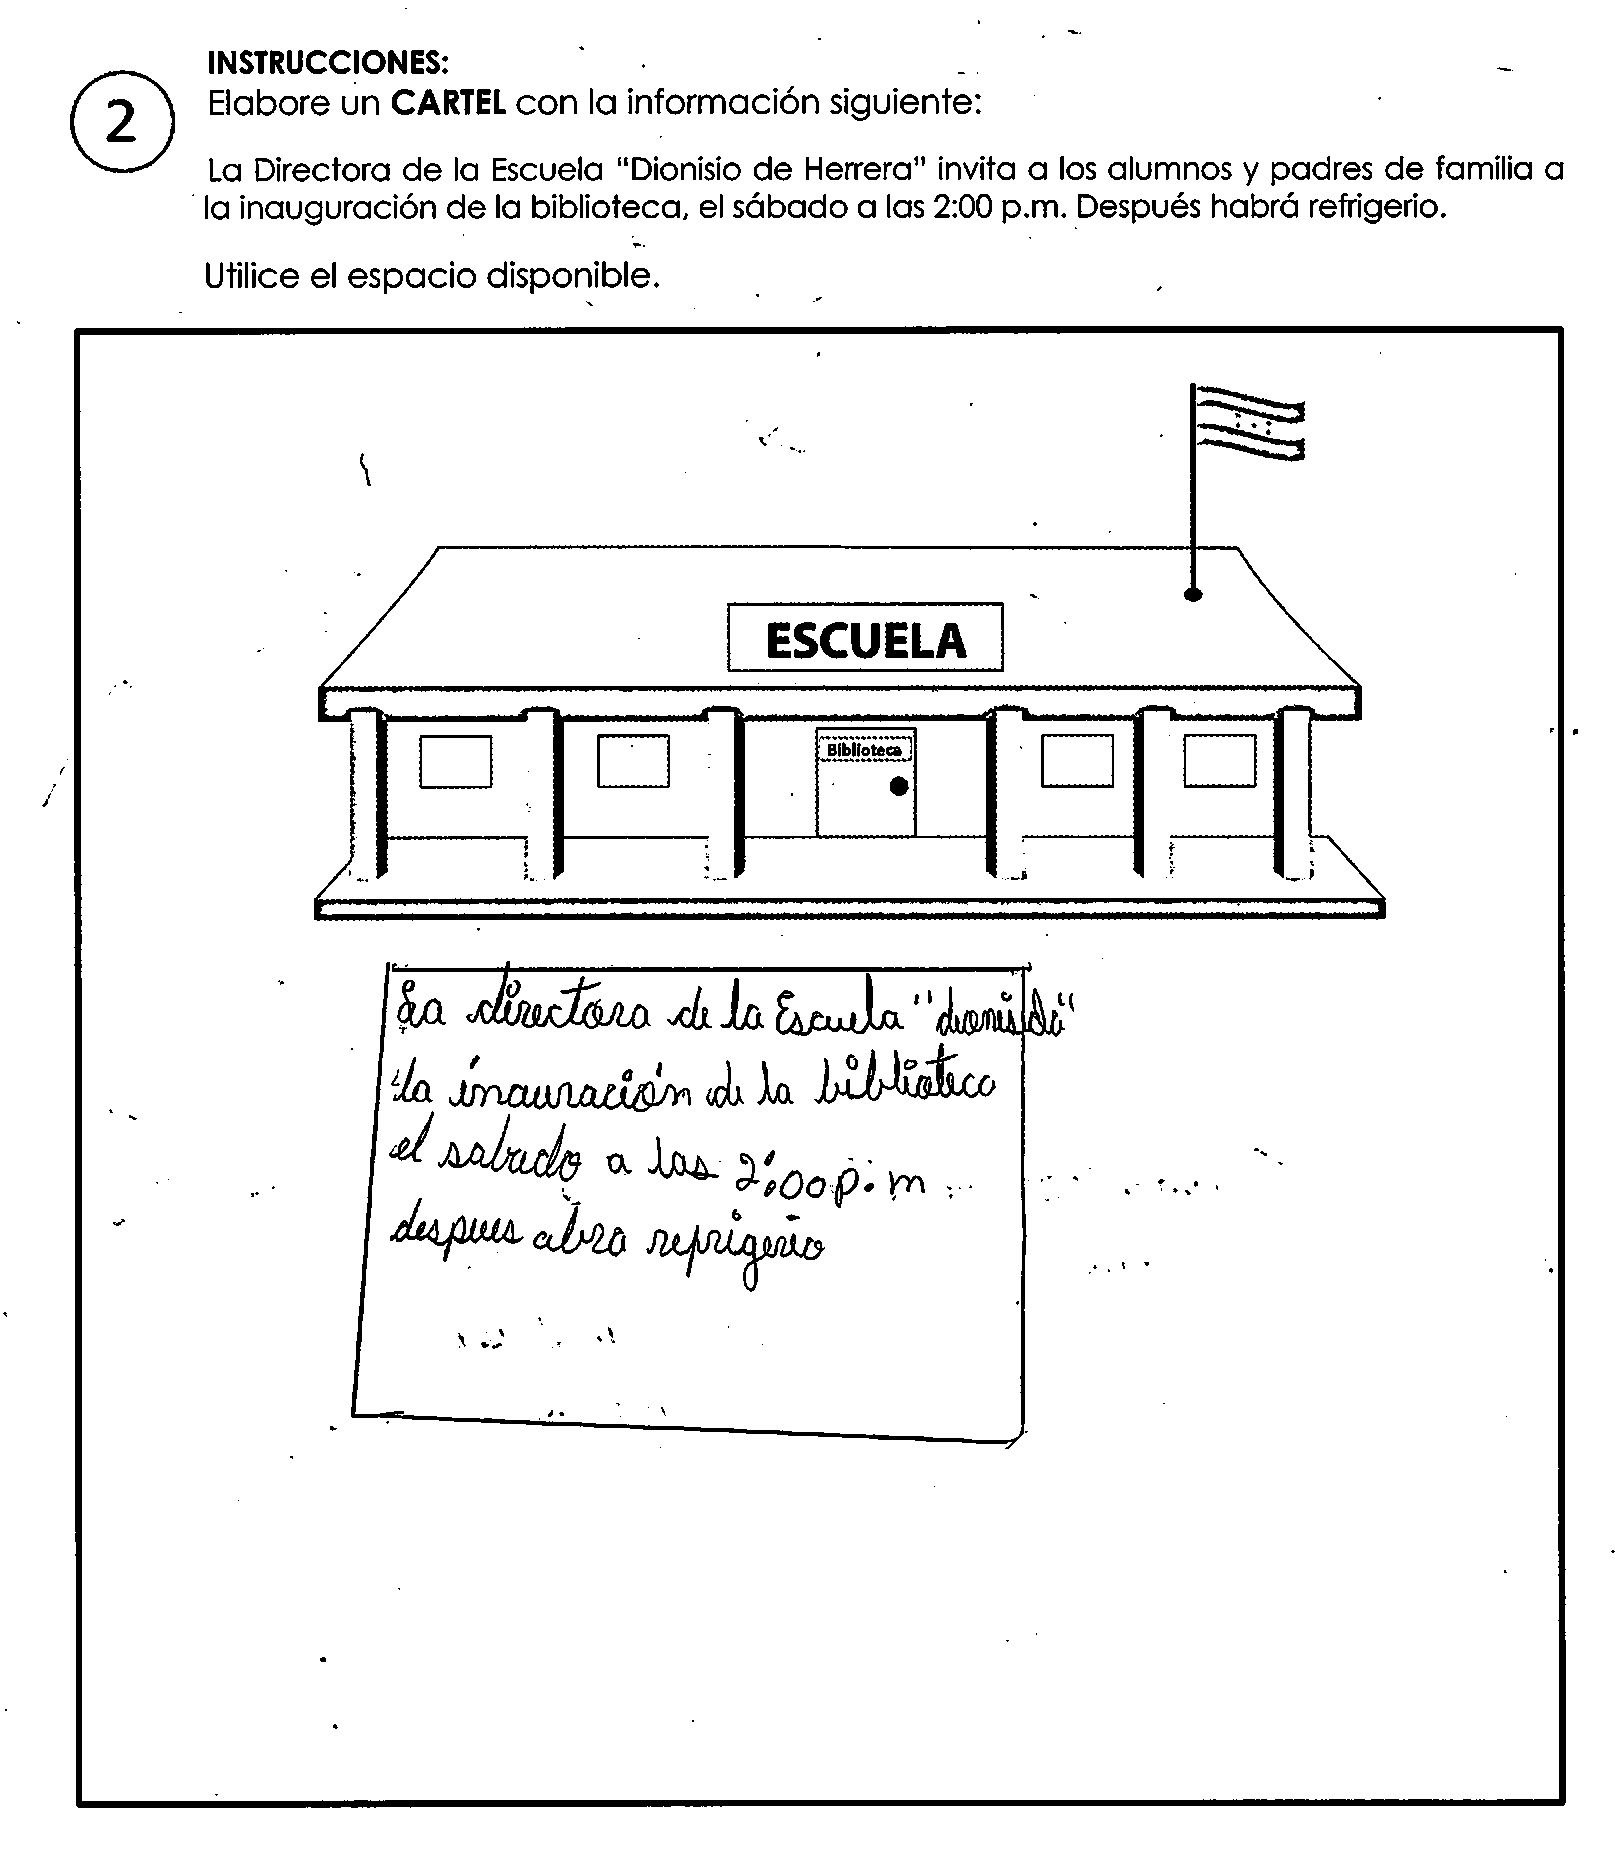 INSTRUCCIONES:
2
Elabore un CARTEL con la información siguiente:
La Directora de la Escuela "Dionisio de Herrera" invita a los alumnos y padres de familia a
la inauguración de la biblioteca, el sábado a las 2:00 p.m. Después habrá refrigerio.
Utilice el espacio disponible.
ESCUELA
Biblioteca
La directora de la Escuela "dionisida"
la inauración de la biblioteca
el sabado a las 2:00 p.m
despues abra reprigerio